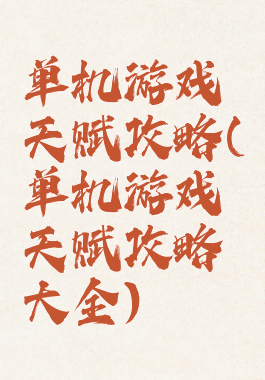 单机游戏
天赋攻略(
单机游戏
天赋攻略
大全)